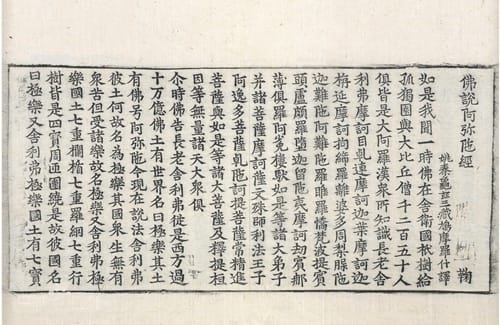 佛說阿弥陁經
姚秦龜茲三藏鳩摩羅什譯
鞠
如是我聞一時佛在舍衛國秖樹給
孤獨園與大比丘僧千二百五十人
俱皆是大阿羅漢衆所知識長老舍
利弗摩訶目乹連摩訶迦葉摩訶迦
栴延摩訶拘絺羅離婆多周梨槃陁
迦難陁阿難陁羅睺羅憍梵波提賓
頭盧頗羅墮迦留陁夷摩訶劫賓那
薄俱羅阿㝹樓馱如是等諸大弟子
并諸菩薩摩訶薩文殊師利法王子
阿逸多菩薩乹陁訶提菩薩常精進
菩薩與如是等諸大菩薩及釋提桓
因等無量諸天大衆俱
尒時佛告長老舍利弗從是西方過
十万億佛土有世界名曰極樂其土
有佛号阿弥陁今現在說法舍利弗
彼土何故名為極樂其國衆生無有
衆苦但受諸樂故名極樂又舍利弗極
樂國土七重欄楯七重羅網七重行
樹皆是四寳周迊圍繞是故彼國名
曰極樂又舍利弗極樂國土有七寳